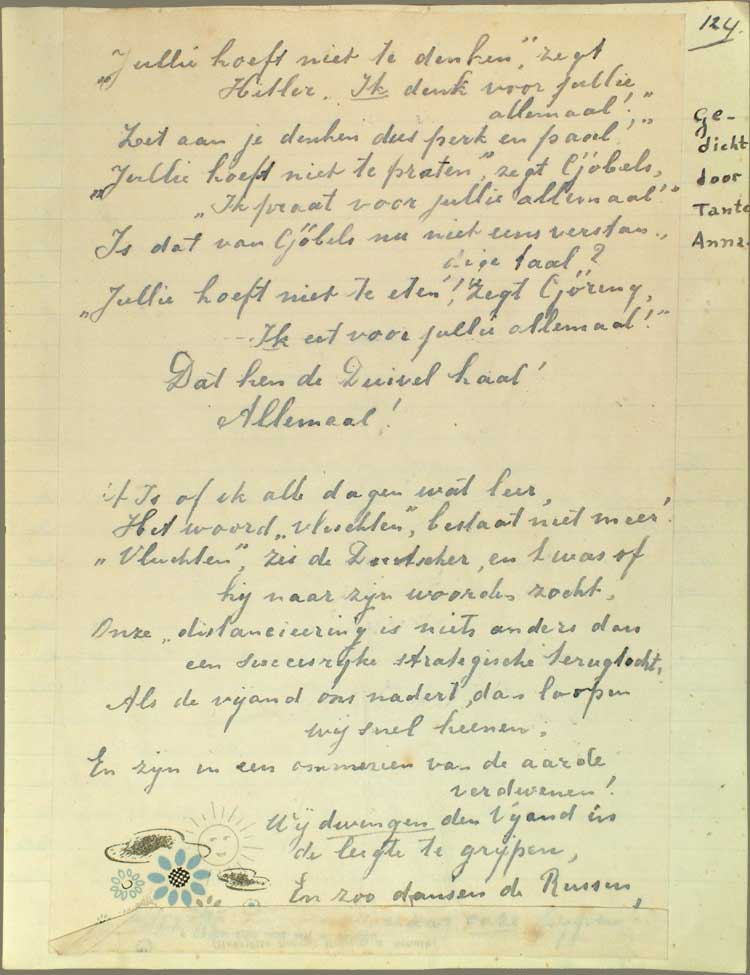 124.
Ge-
dicht
door
Tante
Anna.
„Jullie hoeft niet te denken”, zegt
Hitler. Ik denk voor jullie
allemaal!”
Zet aan je denken dus perk en paal,
„Jullie hoeft niet te praten”, zegt Göbels,
„Ik praat voor jullie allemaal!”
Is dat van Göbels nu niet eens verstan-
dige taal?
„Jullie hoeft niet te eten”! zegt Göring,
Ik eet voor jullie allemaal!”
Dat hen de Duivel haal!
Allemaal!
't Is of ik alle dagen wat leer,
Het woord „vluchten”, bestaat niet meer!
„Vluchten”, zei de Duitscher, en 't was of
hij naar zijn woorden zocht,
Onze „distancieering is niets anders dan
een succesrijke strategische terugtocht,
Als de vijand ons nadert, dan loopen
wij snel heenen,
En zijn in een ommezien van de aarde
verdwenen!
Wij dwingen den Vijand in
de leegte te grijpen,
En zoo dansen de Russen,